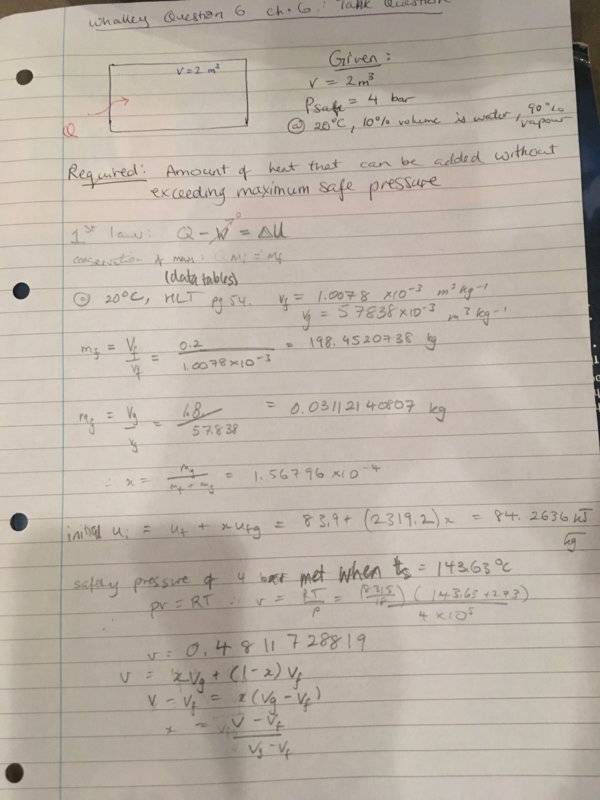 Whalley Question 6 ch.6: Tank Question
V = 2 m³
Q
Given:
V = 2m³
Psafe = 4 bar
@ 20°C, 10% volume is water, 90% vapour
Required: Amount of heat that can be added without
exceeding maximum safe pressure
1st law: Q - W→0 = ΔU
conservation of mass: mi = mf
(data tables)
@ 20°C, HLT pg 54. vf = 1.0078 x10-3 m³ kg-1
vg = 57838x10-3 m³ kg-1
mf = Vf/vf = 0.2/1.0078x10-3 = 198.4520738 kg
mg = Vg/vg = 1.8/57.838 = 0.03112140807 kg
∴ x = mg/mf + mg = 1.56796 x10-4
initial ui = uf + x ufg = 83.9 + (2319.2)x = 84.2636 kJ/kg
safety pressure of 4 bar met when ts = 143.63°C
pv = RT ∴ v = RT/P = (8315/18)(143.63+273)/4x10⁵
v = 0.4811728819
v = xvg + (1-x)vf
v - vf = x(vg - vf)
x = v - vf/vg - vf